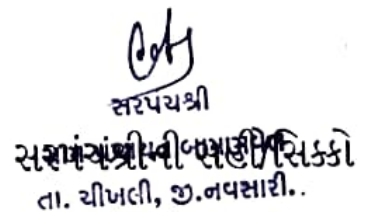 સરપચશ્રી
સરપંચશ્રીની સહી/સિક્કો
તા. ચીખલી, જી.નવસારી.